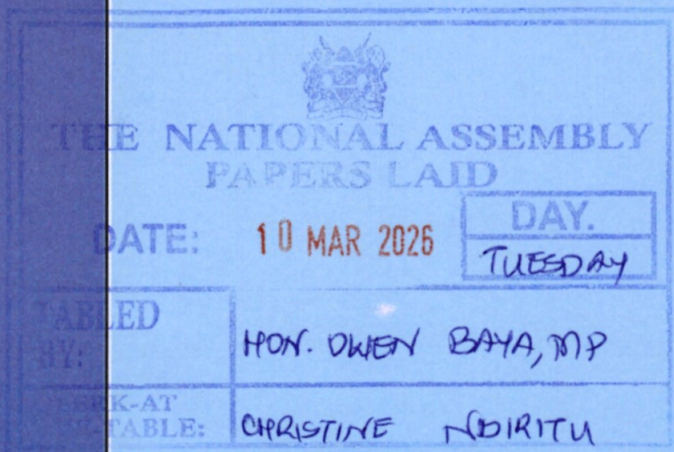 THE NATIONAL ASSEMBLY
PAPERS LAID
DATE: 10 MAR 2026
DAY.
TUESDAY
TABLED BY: HON. OWEN BAYA, MP
CLERK-AT THE-TABLE: CHRISTINE NDIRITU